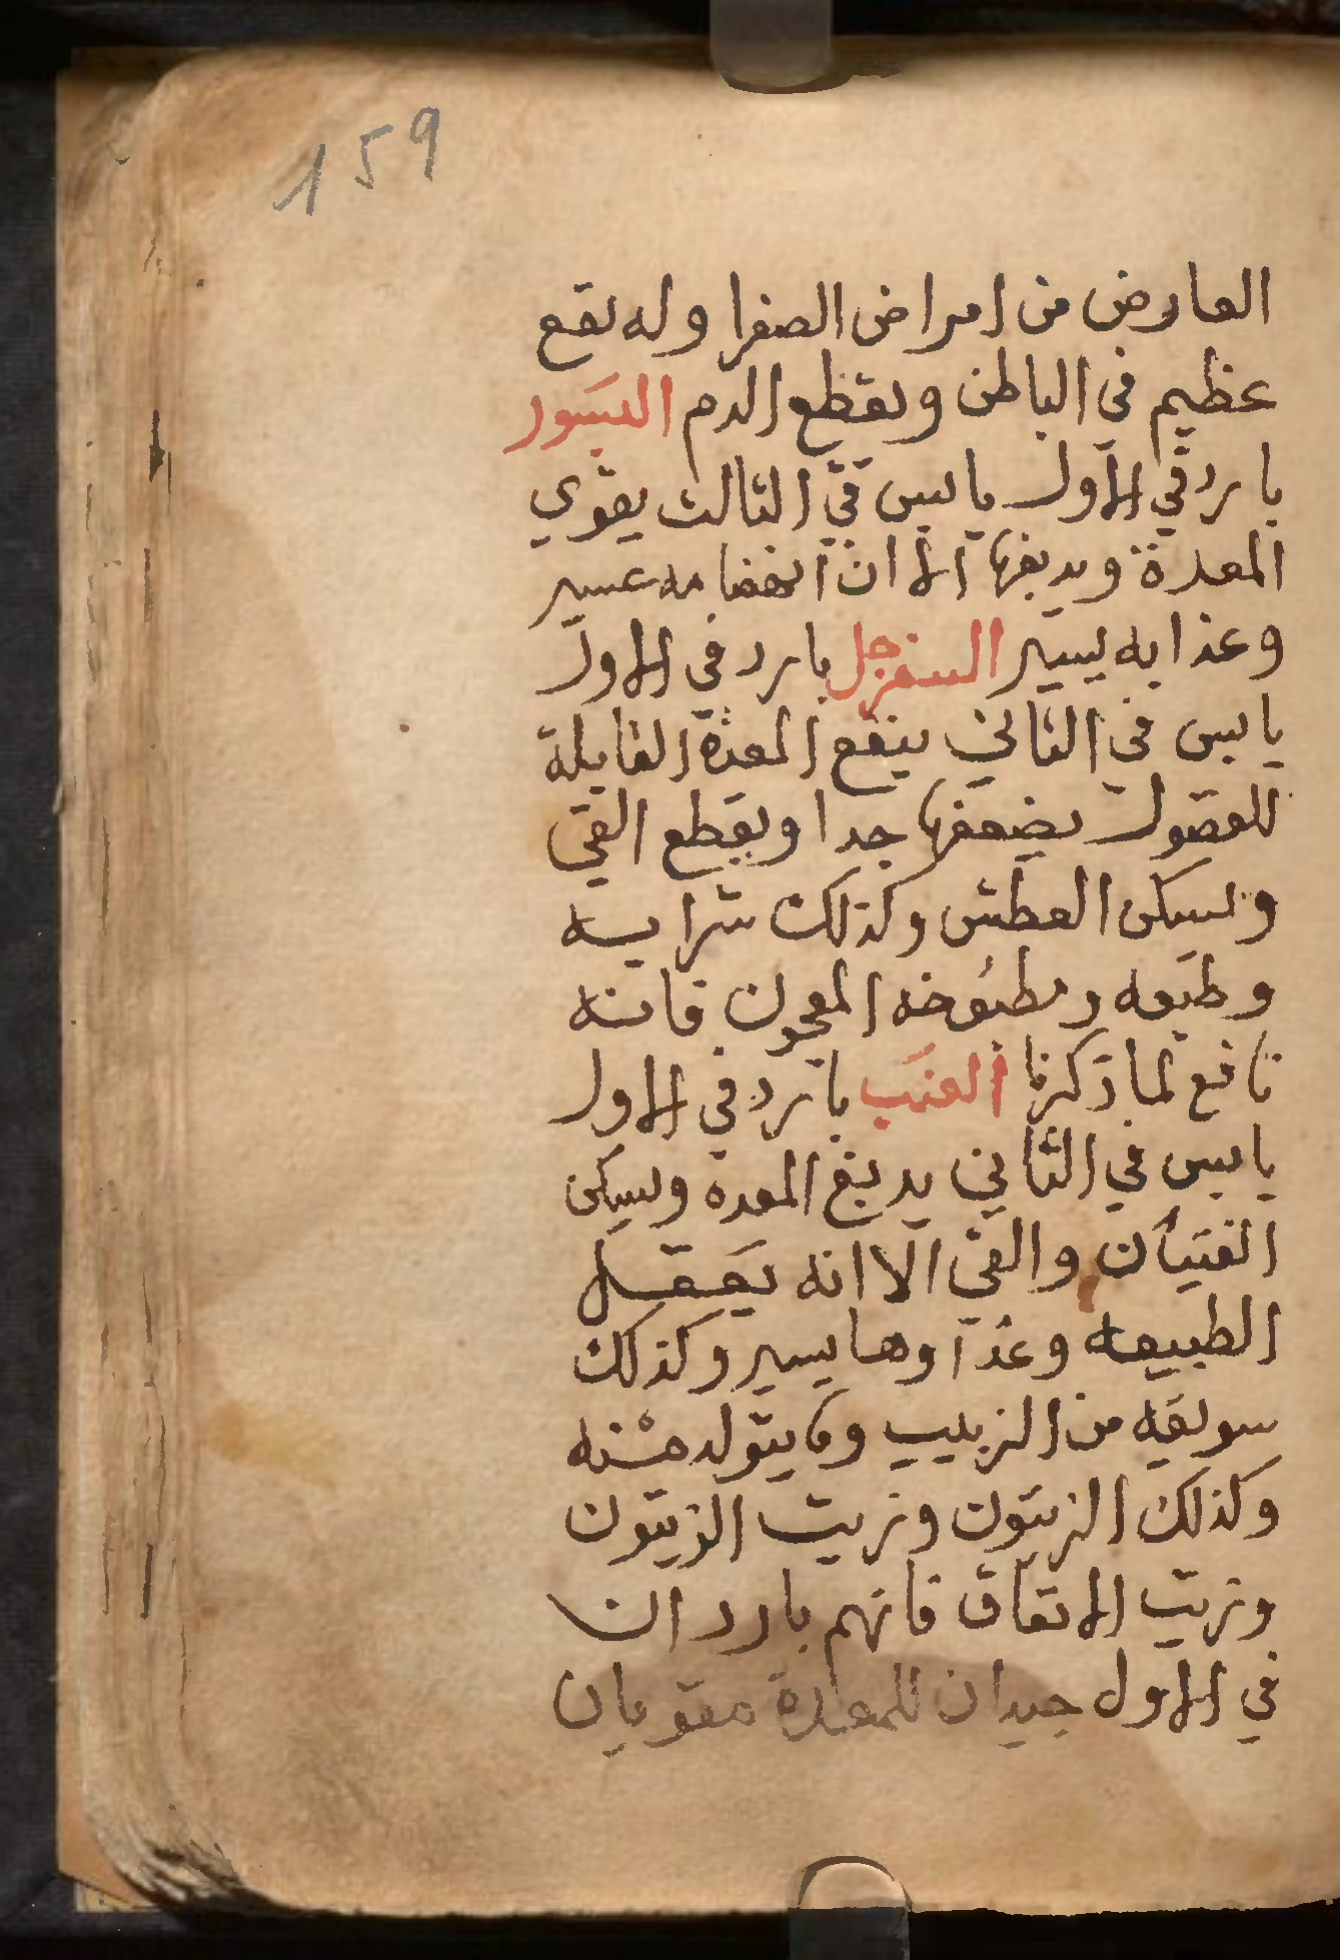 159
العارض من امراض الصفرا وله نفع
عظيم في الباطن ويقطع الدم البسور
بارد في الاول يابس في الثالث يقوي
المعدة ويدبغها الا ان انهضامه عسير
وغذايه يسير السفرجل بارد في الاول
يابس في الثاني ينفع المعدة القابلة
للفضول بضعفها جدا ويقطع القي
ويسكن العطش وكذلك شرابه
وطبعه ومطبوخه المعجون فانه
نافع لما ذكرنا العنب بارد في الاول
يابس في الثاني يدبغ المعدة ويسكن
الغثيان والقي الا انه يعقل
الطبيعه وغذاوها يسير وكذلك
سويقه من الزبيب وما يتولد منه
وكذلك الزيتون وزيت الزيتون
وزيت الانفاق فانهم باردان
في الاول جيدان للمعدة مقويان